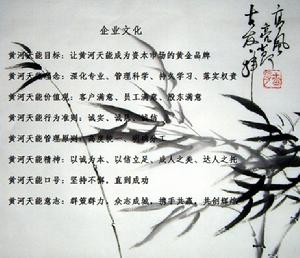 企业文化
黄河天能目标：让黄河天能成为资本市场的黄金品牌
黄河天能理念：深化专业、管理科学、持久学习、落实权责
黄河天能价值观：客户满意、员工满意、股东满意
黄河天能行为准则：诚实、诚恳、诚信
黄河天能管理原则：高度统一、
黄河天能精神：以诚为本、以信立足、成人之美、达人之托
黄河天能口号：坚持不懈，直到成功
黄河天能意志：群策群力，众志成城，携手共赢，共创辉煌